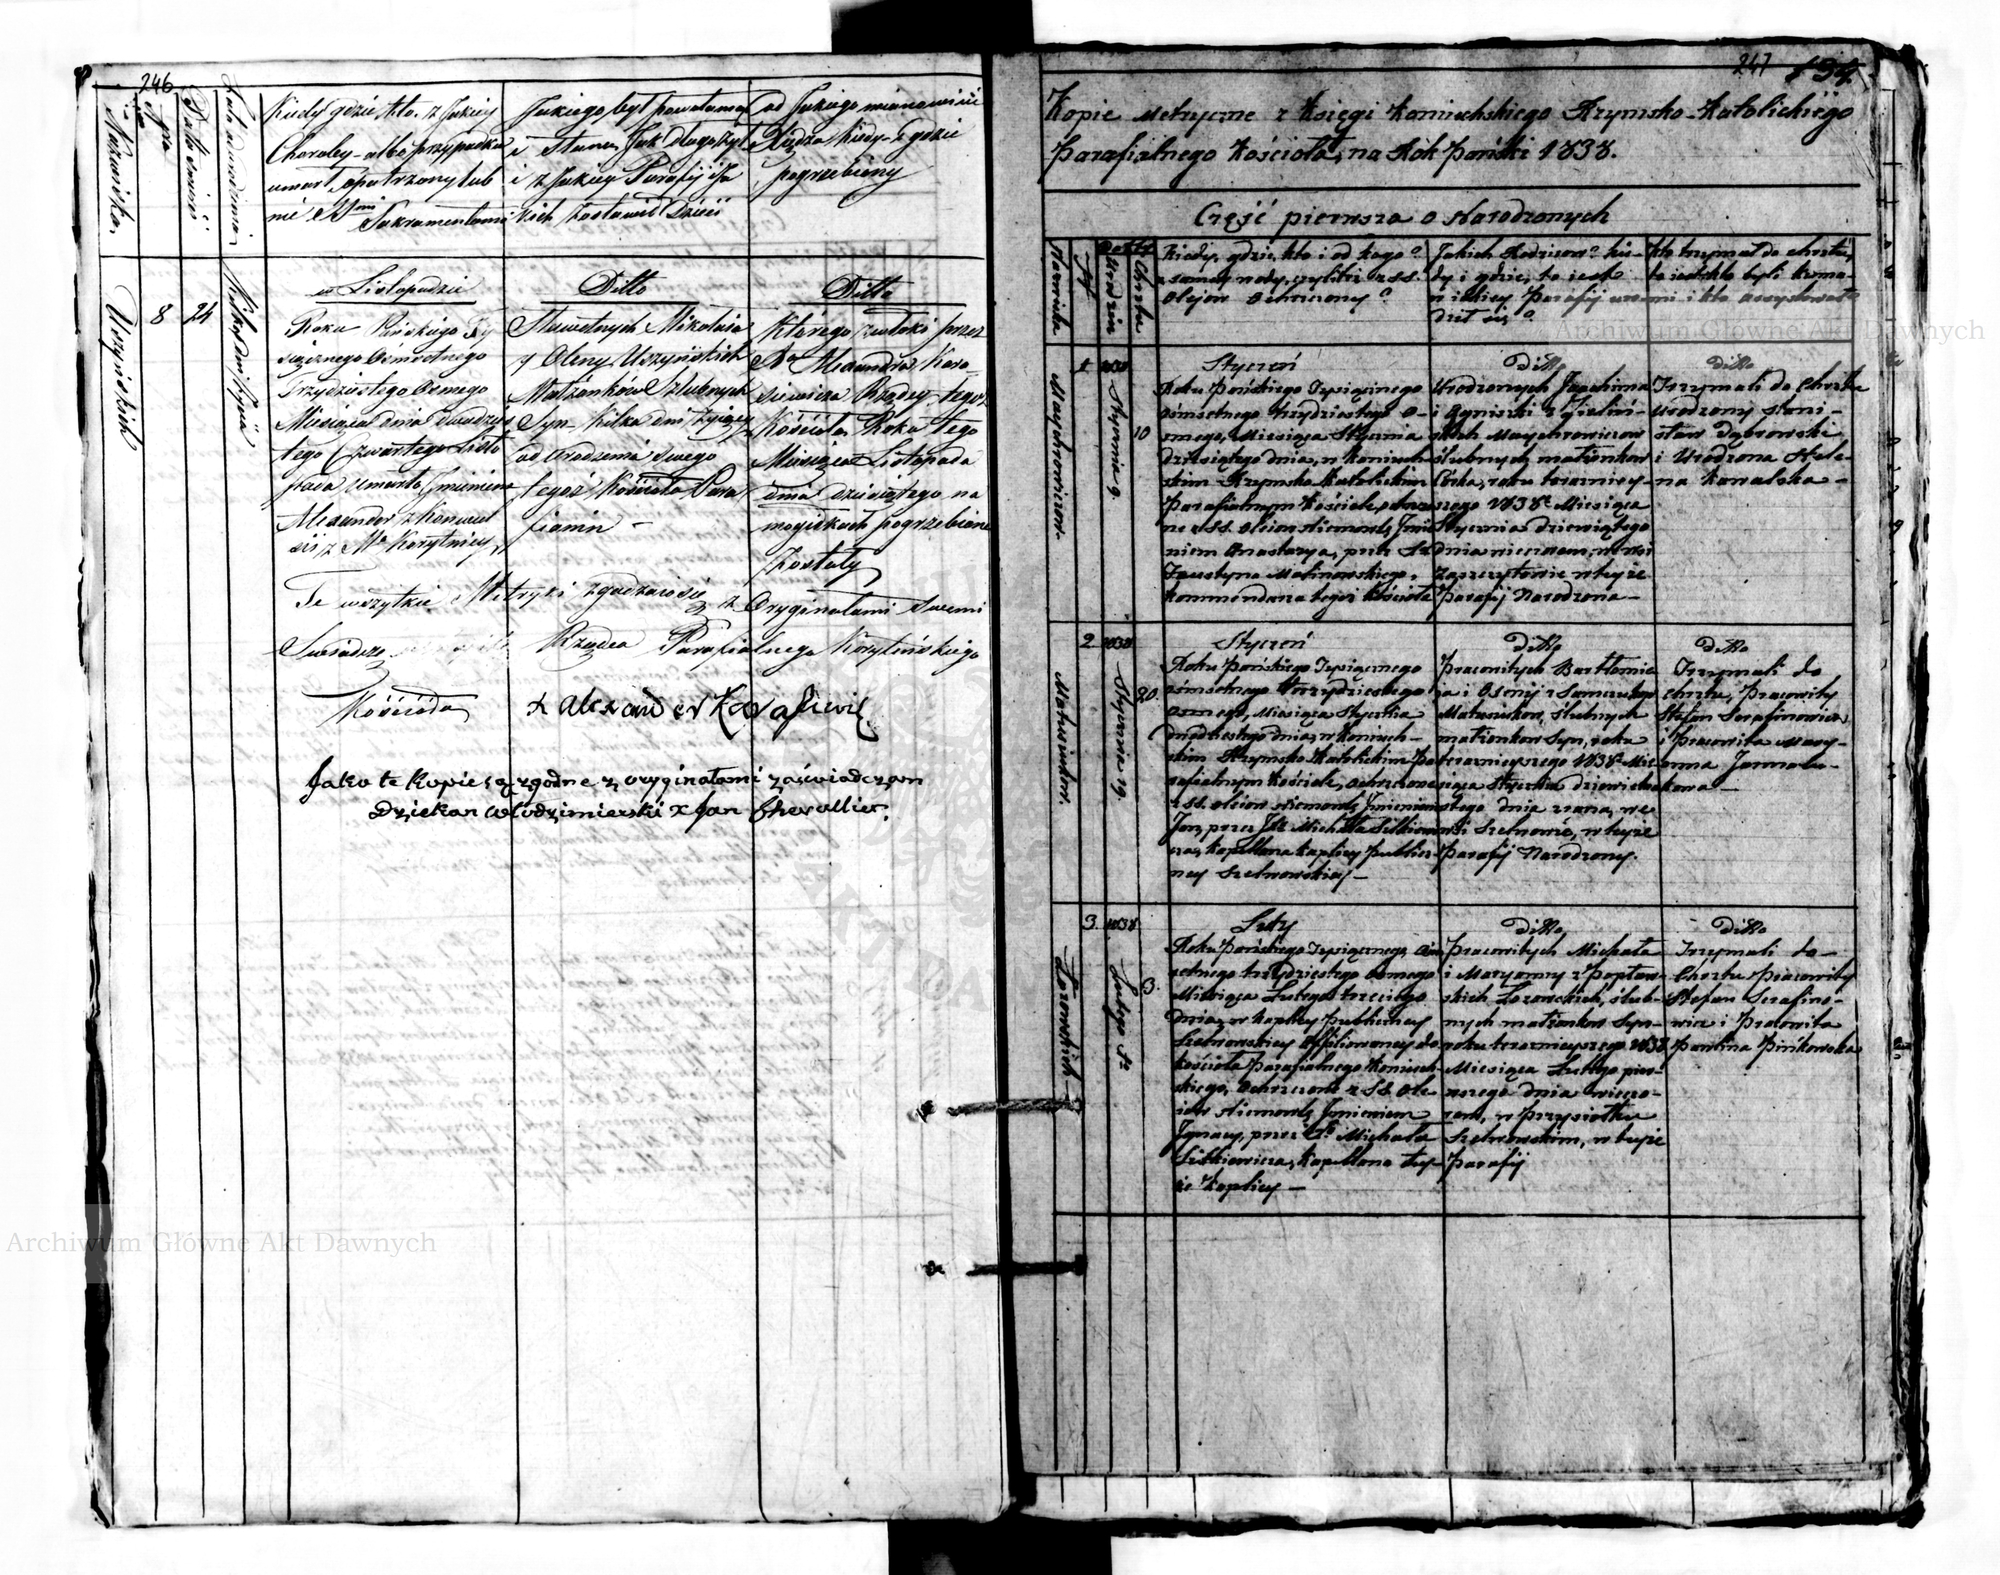 246
Nazwiska
Nro
Data Śmierci
Lata urodzenia
Kiedy gdzie kto. z Jakiey
Choroby albo przypadku
umarł opatrzony lub
nie SSmi Sakramentami
Jakiego był powołania
i Stanu, Jak długo żył
i z Jakiey Parafij i Ja
kich zostawił Dzieci
od Jakiego mianowicie
Xiędza kiedy i gdzie
pogrzebiony
Uszyńskich
8
24
Kilka dni żyjący
w Listopadzie
Roku Pańskiego Ty
siącznego Ośmsetnego
Trzydziestego Osmego
Miesiąca dnia dwudzies
tego Czwartego Listo
pada umarł Imieniem
Alexander z konwul
sii z Mka Korytnicy
Ditto
Sławetnych Mikołaja
y Oleny Uszyńskich
Małżonków Szlubnych
Syn Kilka dni żyjący
od Urodzenia swego
tegoż Kościoła Para
fianin
Ditto
Którego zwłoki przez
Xa Alexandra Kora
siewicza Rządcę tegoż
Kościoła Roku tego
Miesiąca Listopada
dnia dziesiątego na
mogiłkach pogrzebione
Zostały
Te wszytkie Metryki zgadzaio się z Oryginałami swemi
Swiadczę Rządca Parafialnego Korytińskiego
Kościoła
X Alexander Korasiewicz
Jako te kopie są zgodne z oryginałami zaświadczam
Dziekan Włodzimierski x Jan Chevallier.
247
134
Kopie Metryczne z Księgi Koniuchskiego Rzymsko-Katolickiego
Parafialnego Kościoła, na Rok Pański 1838.
Część pierwsza o Narodzonych
Nazwiska
Nr
Data
Urodzin
Chrztu
Kiedy, gdzie, kto i od kogo?
z samey wody, czyli też z SS.
Olejow Ochrzczony?
Jakich Rodzicow? kie-
dy i gdzie, to iest
w iakiey Parafij uro
dził się?
kto trzymał do chrztu,
to iest kto byli kuma-
mi i kto assystował
1
1838
Stycznia 9
10
Maychrowiczow.
Styczeń
Roku Pańskiego Tysiącznego
Ośmsetnego trzydziestego O-
smego, Miesiąca Stycznia
dziesiątego dnia, w Koniuch-
skim Rzymsko Katolickim
Parafialnym Kościele, ochrzczo
na z SS. Olejow Niemowlę Imie
niem Anastazya, przez Xa
Faustyna Malinowskiego,
Kommendarza tegoż Kościoła
Ditto
Urodzonych Joachima
i Agnieszki z Zieliń-
skich Maychrowiczow
ślubnych małżonkow
Córka, roku teraźniey-
szego 1838o Miesiąca
Stycznia dziewiątego
dnia wieczorem, we wsi
Zaszczytowie w teyże
Parafij Narodzona
Ditto
Trzymali do Chrztu
Urodzony Stani-
sław Dąbrowski
i Urodzona Hele-
na Kowalska
2
1838
Stycznia 19.
20
Matusiakow.
Styczeń
Roku Pańskiego Tysiącznego
Ośmsetnego Trzydziestego
Osmego, Miesiąca Stycznia
dwudziestego dnia, w Koniuch-
skim Rzymsko Katolickim Pa
rafialnym Kościele, ochrzczone
z SS. Olejow Niemowlę Imieniem
Jan, przez Xa Michała Sitkiewi
cza, Kapellana kaplicy Publicz-
ney Szelwowskiey
Ditto
Pracowitych Bartłomie
ja i Osoniy z Samczukow
Matusiakow, ślubnych
małżonkow Syn, roku
teraznieyszego 1838o Mie
siąca Stycznia dziewiętna
stego dnia z rana, we
wsi Szelwowie, w teyże
Parafij Narodzony.
Ditto
Trzymali do
chrztu, Pracowity
Stefan Serafinowicz,
i Pracowita Mary-
anna Jarmolu-
kowa
3
1838
Lutego 1o
3.
Łozowskich
Luty
Roku Pańskiego Tysiącznego, Ośm
setnego trzydziestego Osmego
Miesiąca Lutego trzeciego
dnia, w kaplicy Publiczney
Szelwowskiey affiliowaney do
kościoła Parafialnego Koniuch-
skiego, Ochrzczone z SS. Ole
jow Niemowlę Imieniem
Ignacy, przez Xa Michała
Sitkiewicza, Kapellana tey-
że kaplicy
Ditto
Pracowitych Michała
i Maryanny z Popław-
skich Łozowskich, ślub-
nych małżonkow Syn
roku teraznieyszego 1838
Miesiąca Lutego pier-
wszego dnia wieczo-
rem, w Przysiołku
Szelwowskim, w teyże
Parafij
Ditto
Trzymali do
Chrztu Pracowity
Stefan Serafino-
wicz i Pracowita
Paulina Pińkowska
Archiwum Główne Akt Dawnych
Archiwum Główne Akt Dawnych